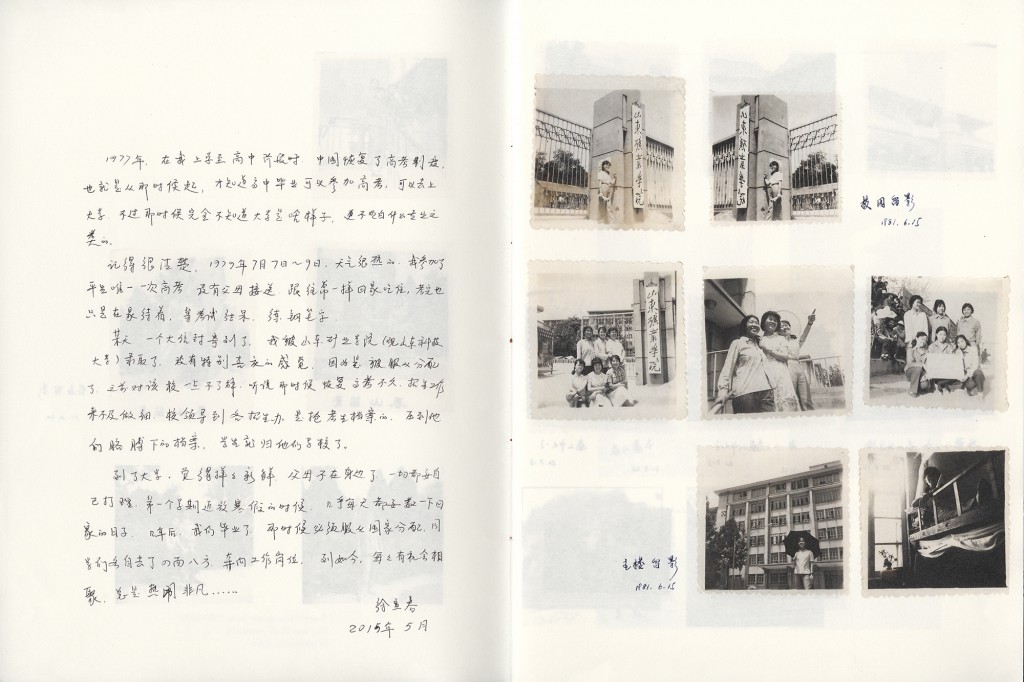 1977年，在我上学至高中阶段时，中国恢复了高考制度，
也就是从那时候起，才知道高中毕业可以参加高考，可以去上
大学，不过那时候完全不知道大学是啥样子，更不明白什么专业之
类的。
记得很清楚，1979年7月7日～9日，天气很热的，我参加了
平生唯一一次高考，没有父母接送，跟往常一样回家吃住，考完也
只是在家待着，等考试结果，练钢笔字
某天，一个大信封寄到了，我被山东矿业学院（现山东科技
大学）录取了，没有特别喜欢的感觉，因为是被服从分配
了，之前对该校一点不了解，听说那时候恢复高考不久，招生
来不及做细，校领导到各招生办，是抢考生档案的，正到他
们胳膊下的档案，学生就归他们学校了。
到了大学，觉得样样新鲜，父母不在身边了，一切都要自
己打理，第一个学期近放寒假的时候，几乎每天都要数一下回
家的日子，几年后，我们毕业了，那时候必须服从国家分配，同
学们各自去了四面八方，奔向工作岗位，到如今，每每有机会相
聚，总是热闹非凡……
2015年 5月
山东矿业学院
山东矿业学院
校园留影
1981.6.15
山东矿业学院
主楼留影
1981.6.15